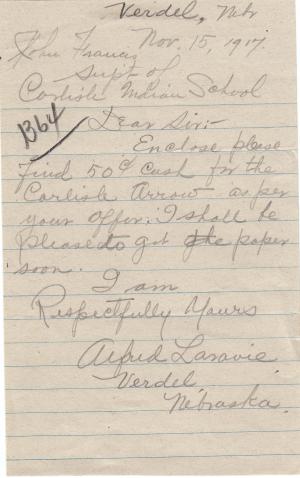 Verdel, Nebr
Nov. 15, 1917.
John Francis
Supt of
Carlisle Indian School
1364
Dear Sir;-
Enclose please
find 50¢ cash for the
Carlisle Arrow as per
your offer; I shall be
please to get the paper
soon.
I am
Respectfully Yours
Alfred Laravie
Verdel,
Nebraska.